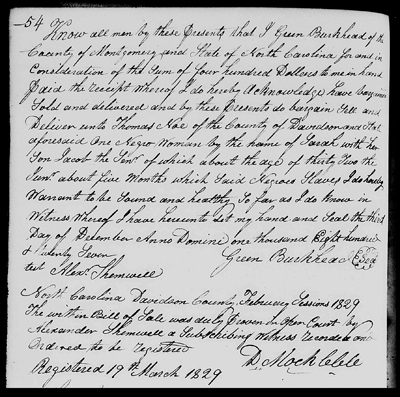 54
Know all men by these Presents that I Green Burkhead of the
County of Montgomery and State of North Carolina for and in
Consideration of the Sum of four hundred Dollars to me in hand
Paid the receipt whereof I do hereby Acknowledge have bargain
Sold and delivered and by these Presents do bargain Sell and
Deliver unto Thomas Noe of the County of Davidson and Stat
aforesaid One Negro Woman by the name of Sarah with her
Son Jacob the Senr. of which about the age of thirty two the
Junr. about five Months which Said Negroes Slaves I do hereby
Warrant to be Sound and healthy So far as I do Know in
Witness Whereof I have hereunto Set my hand and Seal the third
Day of December Anno Domini one thousand Eight hundred
& twenty Seven Green Burkhead Seal
test Alexr. Shemwell
North Carolina Davidson County, February Sessions 1829
The within Bill of Sale was duly Proven in Open Court by
Alexander Shemwell a Subscribing Witness recorded and
Ordered to be registered
D. Mock Clk
Registered 19th March 1829